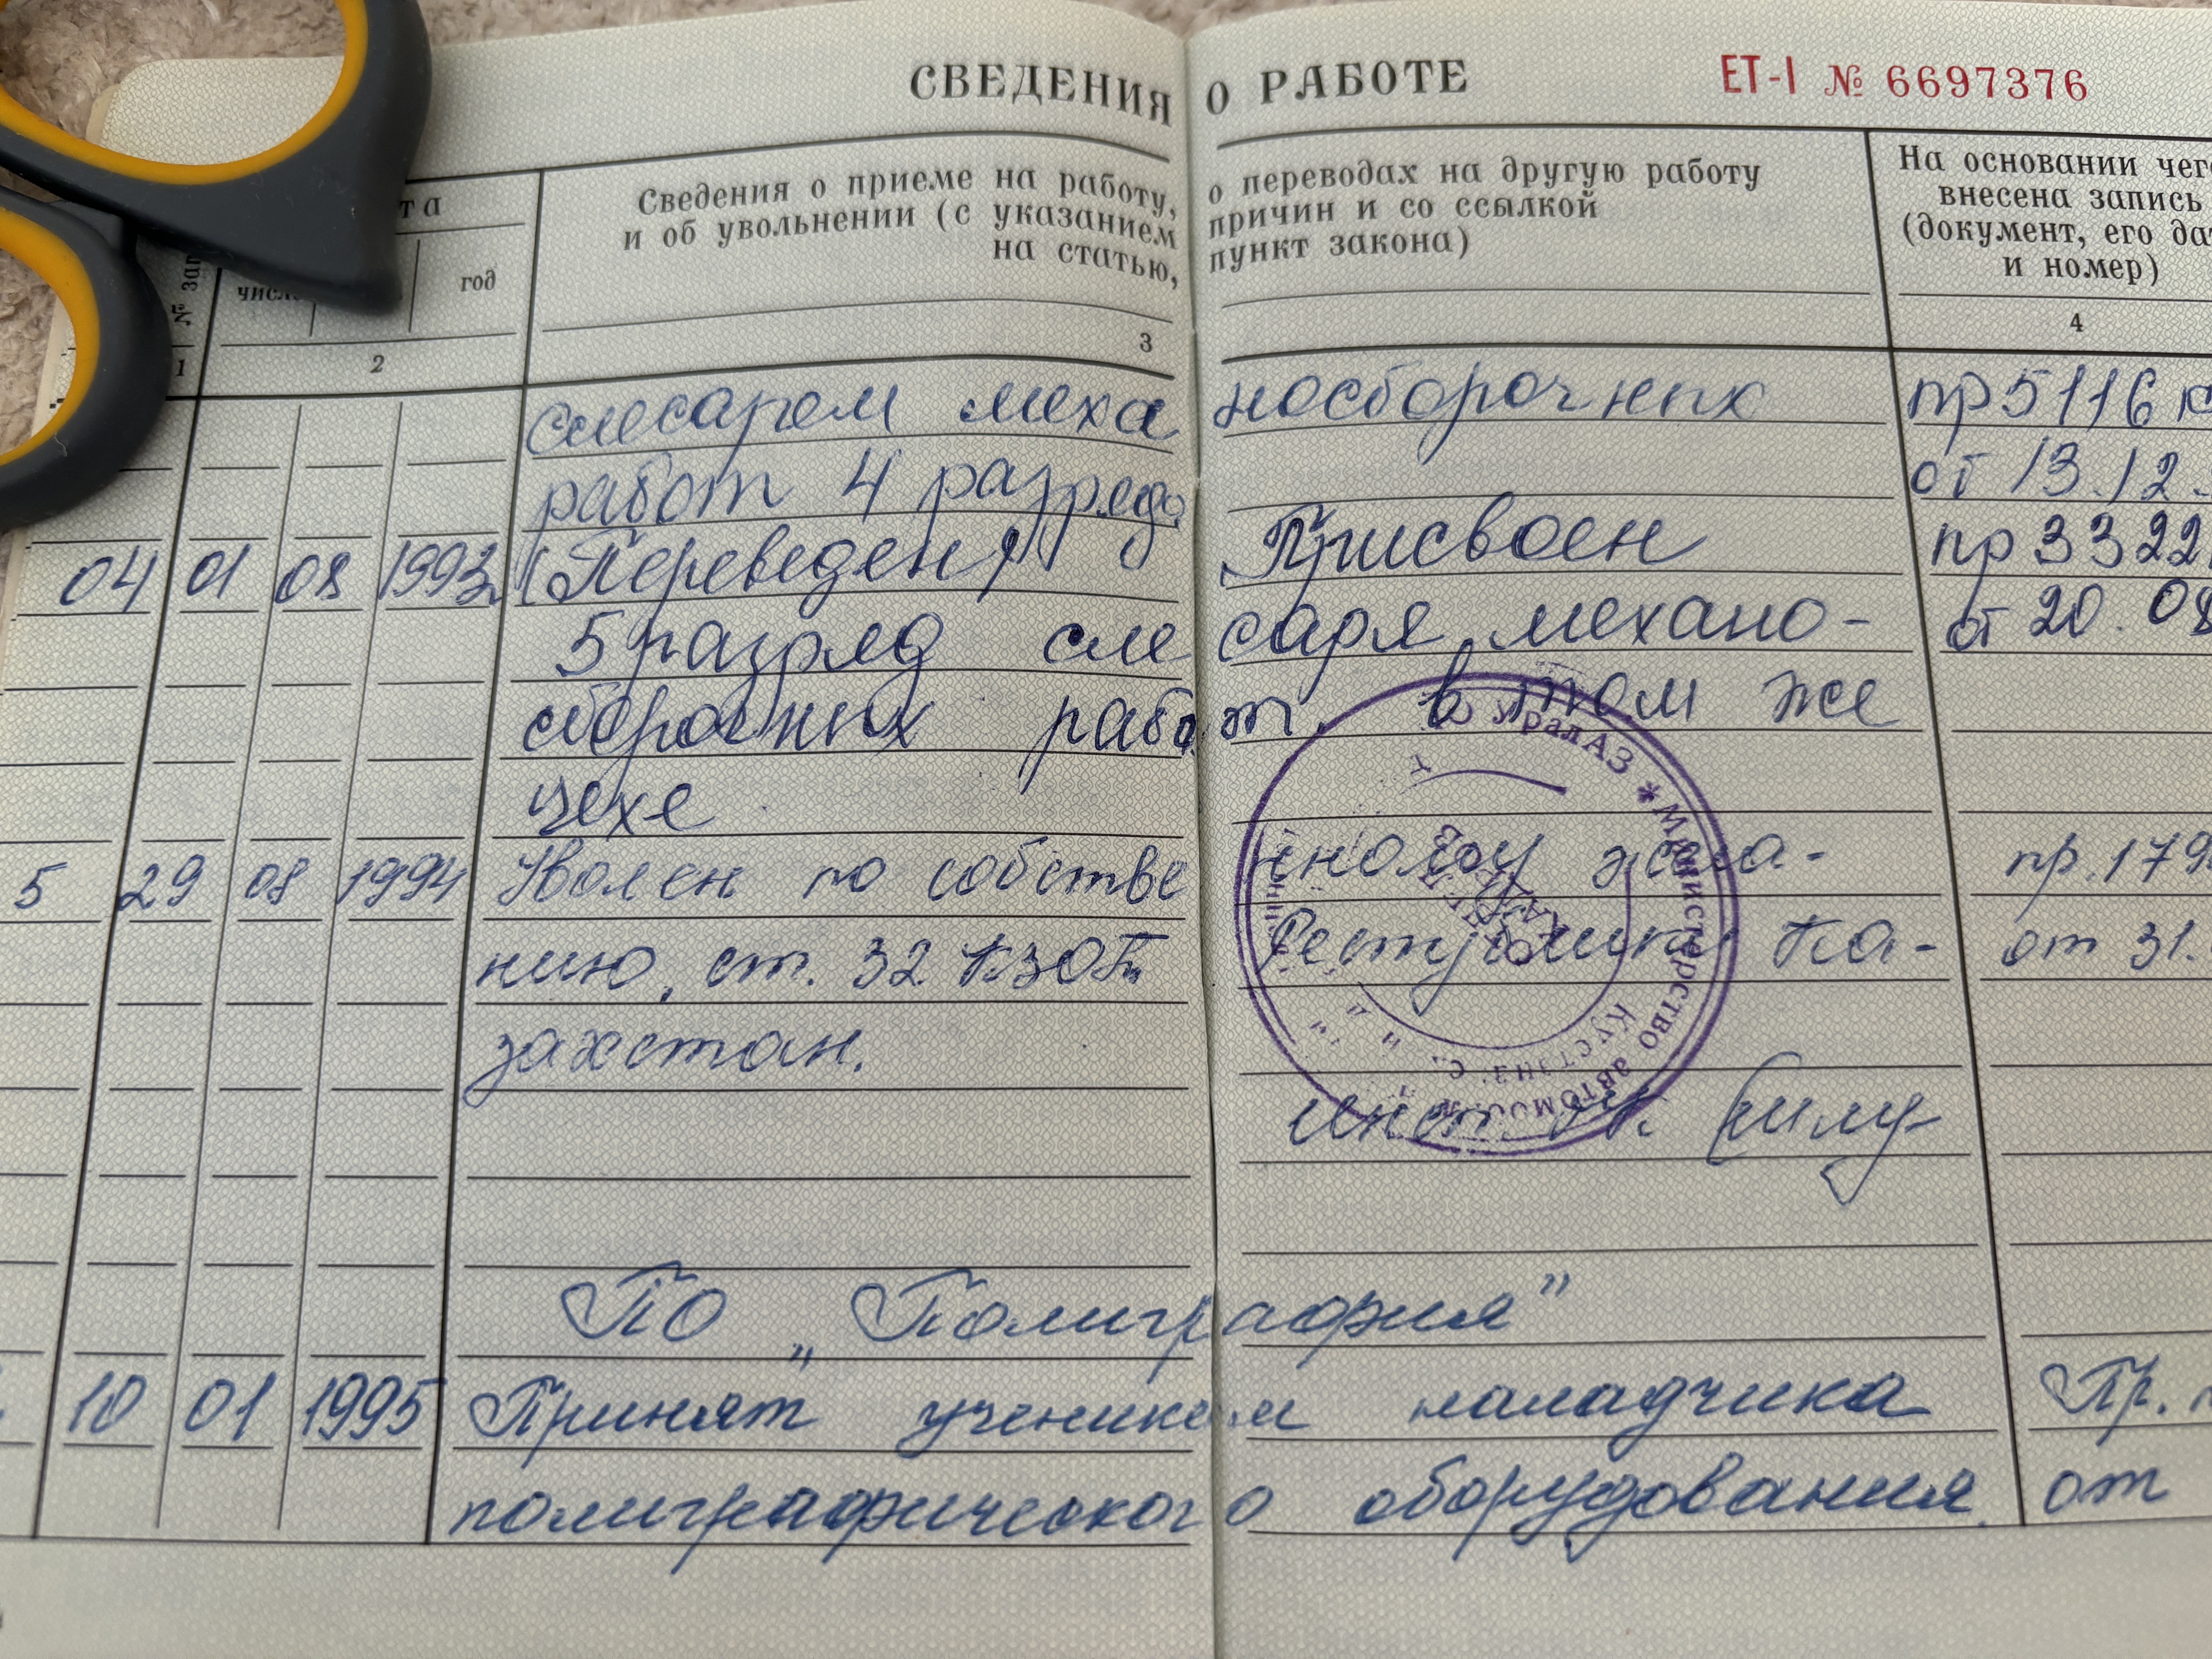 СВЕДЕНИЯ О РАБОТЕ ЕТ-I № 6697376
та
Сведения о приеме на работу, о переводах на другую работу
и об увольнении (с указанием причин и со ссылкой
на статью, пункт закона)
На основании чего
внесена запись
(документ, его дат
и номер)
№ зап
число год
1 2 3 4
слесарем механосборочных пр 5116 к
работ 4 разряда от 13.12.
04 01 08 1993 (Переведен) Присвоен пр 3322
5 разряд слесаря механо- от 20.08
сборочных работ. в том же
цехе.
5 29 08 1994 Уволен по собственному жела- пр.179
нию, ст. 32 КЗОТ Республики Ка- от 31.
захстан.
УралАЗ * Министерство автомоб
Кустан
инсп.
ПО „Полиграфия"
10 01 1995 Принят учеником наладчика Пр.
полиграфического оборудования. от